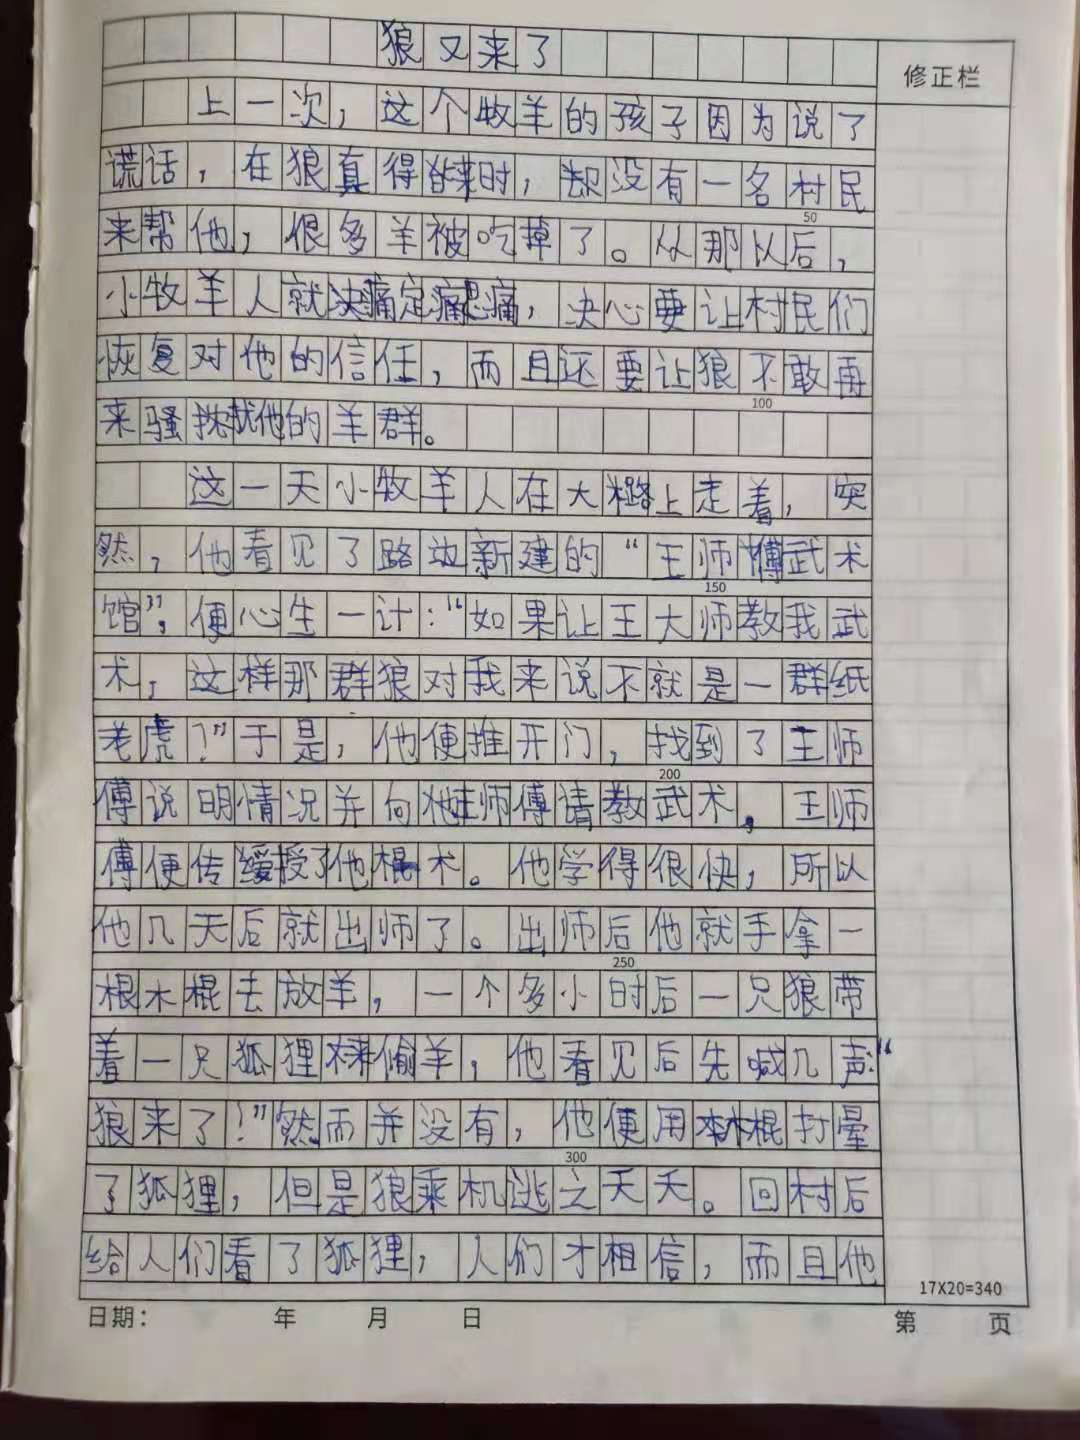 狼又来了
修正栏
上一次，这个牧羊的孩子因为说了
谎话，在狼真得来时，却没有一名村民
50
来帮他，很多羊被吃掉了。从那以后，
小牧羊人就决定痛定思痛，决心要让村民们
恢复对他的信任，而且还要让狼不敢再
100
来骚扰他的羊群。
这一天小牧羊人在大路上走着，突
然，他看见了路边新建的“王师傅武术
150
馆”，便心生一计：“如果让王大师教我武
术，这样那群狼对我来说不就是一群纸
老虎？”于是，他便推开门，找到了王师
200
傅说明情况并向王师傅请教武术，王师
傅便传授了他棍术。他学得很快，所以
他几天后就出师了。出师后他就手拿一
250
根木棍去放羊，一个多小时后一只狼带
着一只狐狸来偷羊，他看见后先喊几声“
狼来了！”然而并没有，他便用木棍打晕
300
了狐狸，但是狼乘机逃之夭夭。回村后
给人们看了狐狸，人们才相信，而且他
17X20=340
日期： 年 月 日 第 页